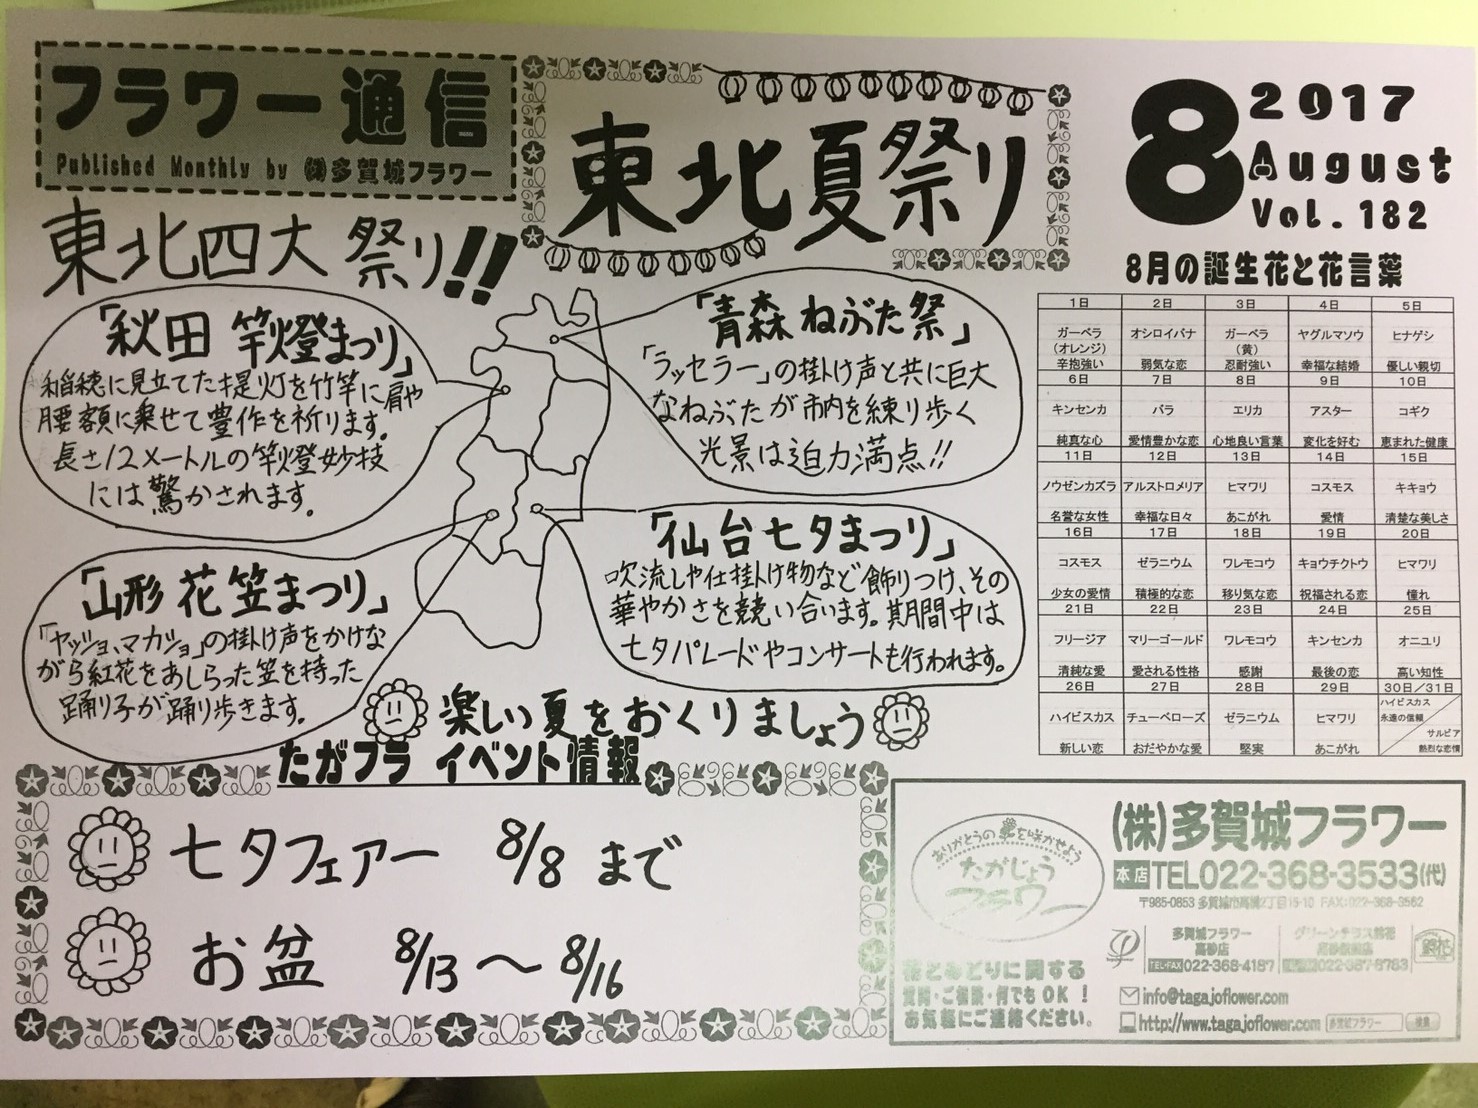 フラワー通信
Published Monthly by ㈱多賀城フラワー
東北夏祭り
8
2017
August
Vol.182
東北四大祭り!!
「秋田 竿燈まつり」
稲穂に見立てた提灯を竹竿に肩や
腰額に乗せて豊作を祈ります。
長さ12メートルの竿燈妙技
には驚かされます。
「青森ねぶた祭」
「ラッセラー」の掛け声と共に巨大
なねぶたが市内を練り歩く
光景は迫力満点!!
「山形 花笠まつり」
「ヤッショ、マカショ」の掛け声をかけな
がら紅花をあしらった笠を持った
踊り子が踊り歩きます。
「仙台七夕まつり」
吹流しや仕掛け物など飾りつけ、その
華やかさを競い合います。期間中は
七夕パレードやコンサートも行われます。
楽しい夏をおくりましょう
8月の誕生花と花言葉
1日 2日 3日 4日 5日
ガーベラ（オレンジ） オシロイバナ ガーベラ（黄） ヤグルマソウ ヒナゲシ
辛抱強い 弱気な恋 忍耐強い 幸福な結婚 優しい親切
6日 7日 8日 9日 10日
キンセンカ バラ エリカ アスター コギク
純真な心 愛情豊かな恋 心地良い言葉 変化を好む 恵まれた健康
11日 12日 13日 14日 15日
ノウゼンカズラ アルストロメリア ヒマワリ コスモス キキョウ
名誉な女性 幸福な日々 あこがれ 愛情 清楚な美しさ
16日 17日 18日 19日 20日
コスモス ゼラニウム ワレモコウ キョウチクトウ ヒマワリ
少女の愛情 積極的な恋 移り気な恋 祝福される恋 憧れ
21日 22日 23日 24日 25日
フリージア マリーゴールド ワレモコウ キンセンカ オニユリ
清純な愛 愛される性格 感謝 最後の恋 高い知性
26日 27日 28日 29日 30日／31日
ハイビスカス チューベローズ ゼラニウム ヒマワリ ハイビスカス 永遠の信頼
新しい恋 おだやかな愛 堅実 あこがれ サルビア 熱烈な恋情
たがフラ イベント情報
七夕フェアー 8/8 まで
お盆 8/13～8/16
ありがとうの花を咲かせよう
たがじょう
フラワー
花とみどりに関する
質問・ご相談・何でもOK！
お気軽にご連絡ください。
(株)多賀城フラワー
本店 TEL022-368-3533(代)
〒985-0853 多賀城市高橋2丁目15-10 FAX:022-368-3562
多賀城フラワー
高砂店
TEL・FAX 022-368-4187
グリーンテラス錦花
022-387-8783
info@tagajoflower.com
http://www.tagajoflower.com 多賀城フラワー 検索